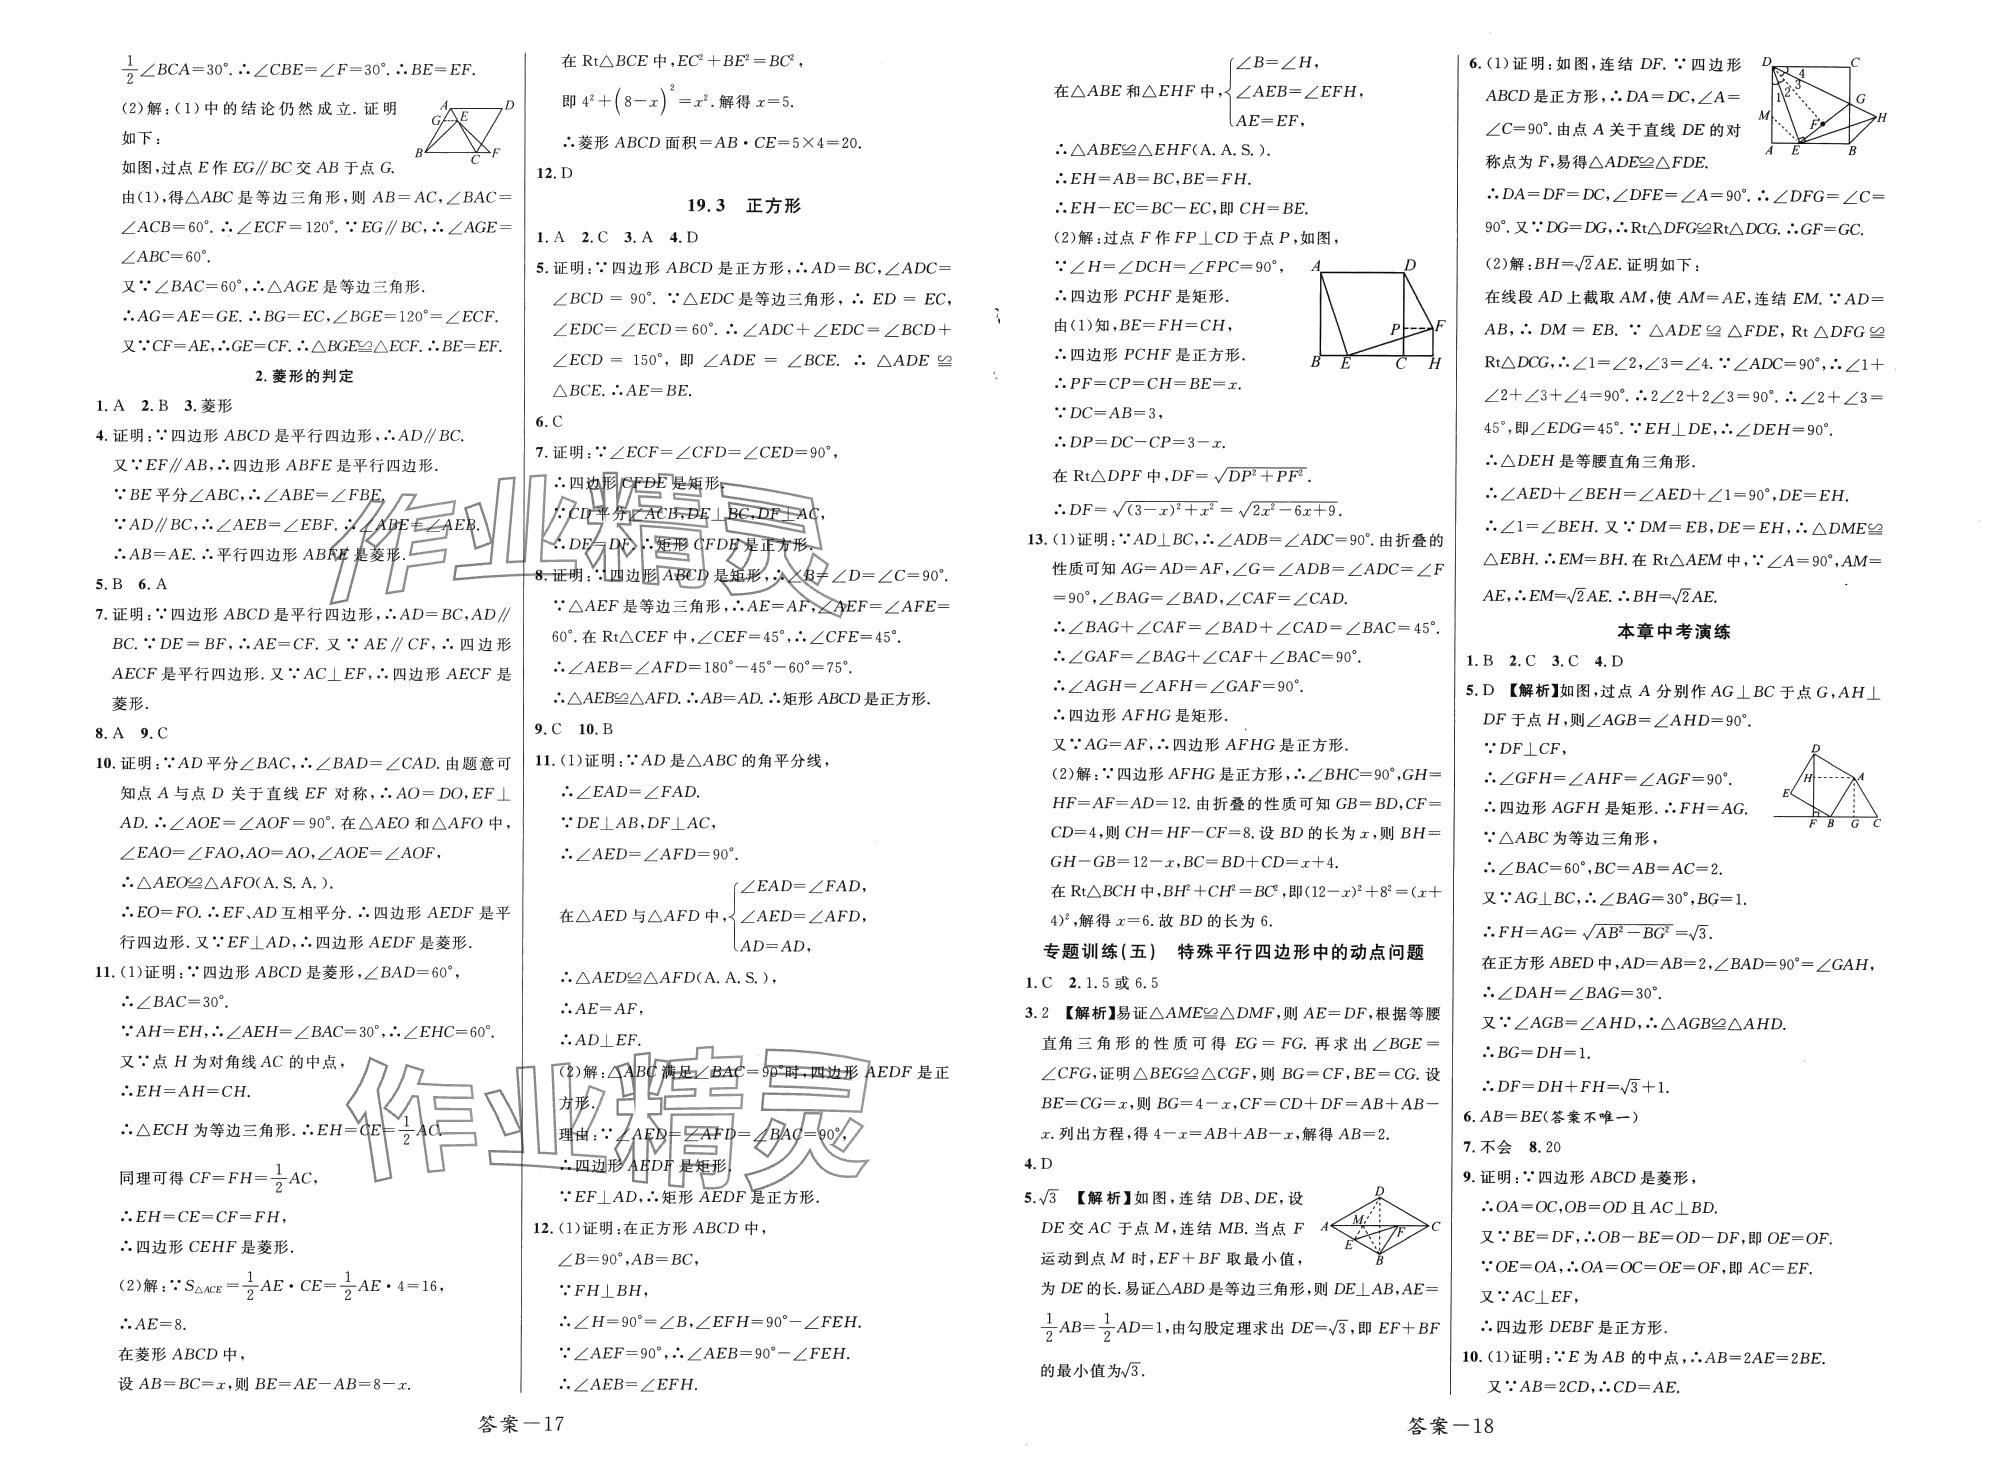 $\frac{1}{2}$∠BCA=30°.∴∠CBE=∠F=30°.∴BE=EF.
(2)解:(1)中的结论仍然成立.证明
如下:
如图,过点E作EG∥BC交AB于点G.
由(1),得△ABC是等边三角形,则AB=AC,∠BAC=
∠ACB=60°.∴∠ECF=120°.∵EG∥BC,∴∠AGE=
∠ABC=60°.
又∵∠BAC=60°,∴△AGE是等边三角形.
∴AG=AE=GE.∴BG=EC,∠BGE=120°=∠ECF.
又∵CF=AE,∴GE=CF.∴△BGE≌△ECF.∴BE=EF.
A D G E B C F
2.菱形的判定
1. A 2. B 3. 菱形
4. 证明:∵四边形ABCD是平行四边形,∴AD∥BC.
又∵EF∥AB,∴四边形ABFE是平行四边形.
∵BE平分∠ABC,∴∠ABE=∠FBE.
∵AD∥BC,∴∠AEB=∠EBF.∴∠ABE=∠AEB.
∴AB=AE.∴平行四边形ABFE是菱形.
5. B 6. A
7. 证明:∵四边形ABCD是平行四边形,∴AD=BC,AD∥
BC.∵DE=BF,∴AE=CF.又∵AE∥CF,∴四边形
AECF是平行四边形.又∵AC⊥EF,∴四边形AECF是
菱形.
8. A 9. C
10. 证明:∵AD平分∠BAC,∴∠BAD=∠CAD.由题意可
知点A与点D关于直线EF对称,∴AO=DO,EF⊥
AD.∴∠AOE=∠AOF=90°.在△AEO和△AFO中,
∠EAO=∠FAO,AO=AO,∠AOE=∠AOF,
∴△AEO≌△AFO(A.S.A.).
∴EO=FO.∴EF、AD互相平分.∴四边形AEDF是平
行四边形.又∵EF⊥AD,∴四边形AEDF是菱形.
11. (1)证明:∵四边形ABCD是菱形,∠BAD=60°,
∴∠BAC=30°.
∵AH=EH,∴∠AEH=∠BAC=30°,∴∠EHC=60°.
又∵点H为对角线AC的中点,
∴EH=AH=CH.
∴△ECH为等边三角形.∴EH=CE=$\frac{1}{2}$AC.
同理可得CF=FH=$\frac{1}{2}$AC,
∴EH=CE=CF=FH,
∴四边形CEHF是菱形.
(2)解:∵S△ACE=$\frac{1}{2}$AE·CE=$\frac{1}{2}$AE·4=16,
∴AE=8.
在菱形ABCD中,
设AB=BC=x,则BE=AE-AB=8-x.
在Rt△BCE中,EC²+BE²=BC²,
即4²+(8-x)²=x².解得x=5.
∴菱形ABCD面积=AB·CE=5×4=20.
12. D
19.3 正方形
1. A 2. C 3. A 4. D
5. 证明:∵四边形ABCD是正方形,∴AD=BC,∠ADC=
∠BCD=90°.∵△EDC是等边三角形,∴ED=EC,
∠EDC=∠ECD=60°.∴∠ADC+∠EDC=∠BCD+
∠ECD=150°,即∠ADE=∠BCE.∴△ADE≌
△BCE.∴AE=BE.
6. C
7. 证明:∵∠ECF=∠CFD=∠CED=90°,
∴四边形CFDE是矩形.
∵CD平分∠ACB,DE⊥BC,DF⊥AC,
∴DE=DF.∴矩形CFDE是正方形.
8. 证明:∵四边形ABCD是矩形,∴∠B=∠D=∠C=90°.
∵△AEF是等边三角形,∴AE=AF,∠AEF=∠AFE=
60°.在Rt△CEF中,∠CEF=45°,∴∠CFE=45°.
∴∠AEB=∠AFD=180°-45°-60°=75°.
∴△AEB≌△AFD.∴AB=AD.∴矩形ABCD是正方形.
9. C 10. B
11. (1)证明:∵AD是△ABC的角平分线,
∴∠EAD=∠FAD.
∵DE⊥AB,DF⊥AC,
∴∠AED=∠AFD=90°.
在△AED与△AFD中,{∠EAD=∠FAD,
∠AED=∠AFD,
AD=AD,
∴△AED≌△AFD(A.A.S.),
∴AE=AF,
∴AD⊥EF.
(2)解:△ABC满足∠BAC=90°时,四边形AEDF是正
方形.
理由:∵∠AED=∠AFD=∠BAC=90°,
∴四边形AEDF是矩形.
∵EF⊥AD,∴矩形AEDF是正方形.
12. (1)证明:在正方形ABCD中,
∠B=90°,AB=BC,
∵FH⊥BH,
∴∠H=90°=∠B,∠EFH=90°-∠FEH.
∵∠AEF=90°,∴∠AEB=90°-∠FEH.
∴∠AEB=∠EFH.
答案—17
在△ABE和△EHF中,{∠B=∠H,
∠AEB=∠EFH,
AE=EF,
∴△ABE≌△EHF(A.A.S.).
∴EH=AB=BC,BE=FH.
∴EH-EC=BC-EC,即CH=BE.
(2)解:过点F作FP⊥CD于点P,如图,
∵∠H=∠DCH=∠FPC=90°,
∴四边形PCHF是矩形.
由(1)知,BE=FH=CH,
∴四边形PCHF是正方形.
∴PF=CP=CH=BE=x.
∵DC=AB=3,
∴DP=DC-CP=3-x.
在Rt△DPF中,DF=$\sqrt{DP²+PF²}$.
∴DF=$\sqrt{(3-x)²+x²}$=$\sqrt{2x²-6x+9}$.
A D P F B E C H
13. (1)证明:∵AD⊥BC,∴∠ADB=∠ADC=90°.由折叠的
性质可知AG=AD=AF,∠G=∠ADB=∠ADC=∠F
=90°,∠BAG=∠BAD,∠CAF=∠CAD.
∴∠BAG+∠CAF=∠BAD+∠CAD=∠BAC=45°.
∴∠GAF=∠BAG+∠CAF+∠BAC=90°.
∴∠AGH=∠AFH=∠GAF=90°.
∴四边形AFHG是矩形.
又∵AG=AF,∴四边形AFHG是正方形.
(2)解:∵四边形AFHG是正方形,∴∠BHC=90°,GH=
HF=AF=AD=12.由折叠的性质可知GB=BD,CF=
CD=4,则CH=HF-CF=8.设BD的长为x,则BH=
GH-GB=12-x,BC=BD+CD=x+4.
在Rt△BCH中,BH²+CH²=BC²,即(12-x)²+8²=(x+
4)²,解得x=6.故BD的长为6.
专题训练(五) 特殊平行四边形中的动点问题
1. C 2. 1.5或6.5
3. 2 【解析】易证△AME≌△DMF,则AE=DF,根据等腰
直角三角形的性质可得EG=FG.再求出∠BGE=
∠CFG,证明△BEG≌△CGF,则BG=CF,BE=CG.设
BE=CG=x,则BG=4-x,CF=CD+DF=AB+AB-
x.列出方程,得4-x=AB+AB-x,解得AB=2.
4. D
5. √3 【解析】如图,连结DB、DE,设
DE交AC于点M,连结MB.当点F
运动到点M时,EF+BF取最小值,
为DE的长.易证△ABD是等边三角形,则DE⊥AB,AE=
$\frac{1}{2}$AB=$\frac{1}{2}$AD=1,由勾股定理求出DE=√3,即EF+BF
的最小值为√3.
D A M F C E B
6. (1)证明:如图,连结DF.∵四边形
ABCD是正方形,∴DA=DC,∠A=
∠C=90°.由点A关于直线DE的对
称点为F,易得△ADE≌△FDE.
∴DA=DF=DC,∠DFE=∠A=90°.∴∠DFG=∠C=
90°.又∵DG=DG,∴Rt△DFG≌Rt△DCG.∴GF=GC.
D C 4 3 2 1 G M F H A E B
(2)解:BH=√2AE.证明如下:
在线段AD上截取AM,使AM=AE,连结EM.∵AD=
AB,∴DM=EB.∵△ADE≌△FDE,Rt△DFG≌
Rt△DCG,∴∠1=∠2,∠3=∠4.∵∠ADC=90°,∴∠1+
∠2+∠3+∠4=90°.∴2∠2+2∠3=90°.∴∠2+∠3=
45°,即∠EDG=45°.∵EH⊥DE,∴∠DEH=90°.
∴△DEH是等腰直角三角形.
∴∠AED+∠BEH=∠AED+∠1=90°,DE=EH.
∴∠1=∠BEH.又∵DM=EB,DE=EH,∴△DME≌
△EBH.∴EM=BH.在Rt△AEM中,∵∠A=90°,AM=
AE,∴EM=√2AE.∴BH=√2AE.
本章中考演练
1. B 2. C 3. C 4. D
5. D 【解析】如图,过点A分别作AG⊥BC于点G,AH⊥
DF于点H,则∠AGB=∠AHD=90°.
∵DF⊥CF,
∴∠GFH=∠AHF=∠AGF=90°.
∴四边形AGFH是矩形.∴FH=AG.
∵△ABC为等边三角形,
∴∠BAC=60°,BC=AB=AC=2.
又∵AG⊥BC,∴∠BAG=30°,BG=1.
∴FH=AG=$\sqrt{AB²-BG²}$=√3.
在正方形ABED中,AD=AB=2,∠BAD=90°=∠GAH,
∴∠DAH=∠BAG=30°.
又∵∠AGB=∠AHD,∴△AGB≌△AHD.
∴BG=DH=1.
∴DF=DH+FH=√3+1.
D H A E F B G C
6. AB=BE(答案不唯一)
7. 不会 8. 20
9. 证明:∵四边形ABCD是菱形,
∴OA=OC,OB=OD且AC⊥BD.
又∵BE=DF,∴OB-BE=OD-DF,即OE=OF.
∵OE=OA,∴OA=OC=OE=OF,即AC=EF.
又∵AC⊥EF,
∴四边形DEBF是正方形.
10. (1)证明:∵E为AB的中点,∴AB=2AE=2BE.
又∵AB=2CD,∴CD=AE.
答案—18
作业精灵
作业精灵